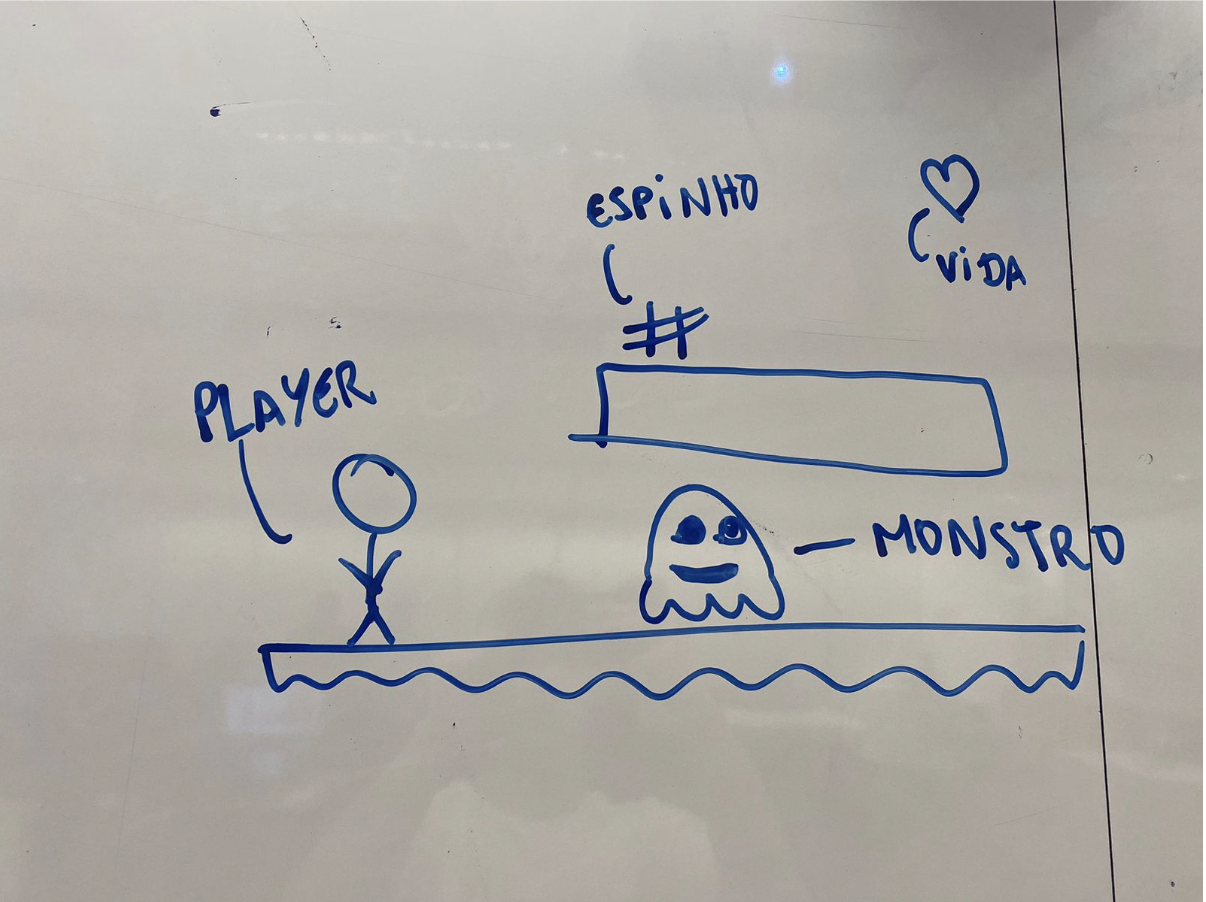 ESPiNHO
ViDA
#
PLAYER
MONSTRO